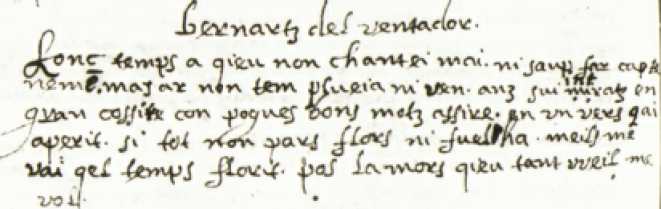 bernartz del ventador.
Lonc temps a qieu non chantei mai. ni saup far capte
nemē. mas ar non tem plueia ni ven. anz sui intratz en
gran cossire con pogues bons motz assire. en un vers qai
aperit. si tot non pars flors ni fuelha. meils me
vai qel temps florit. pos lamors qieu tant vveil me
vol.